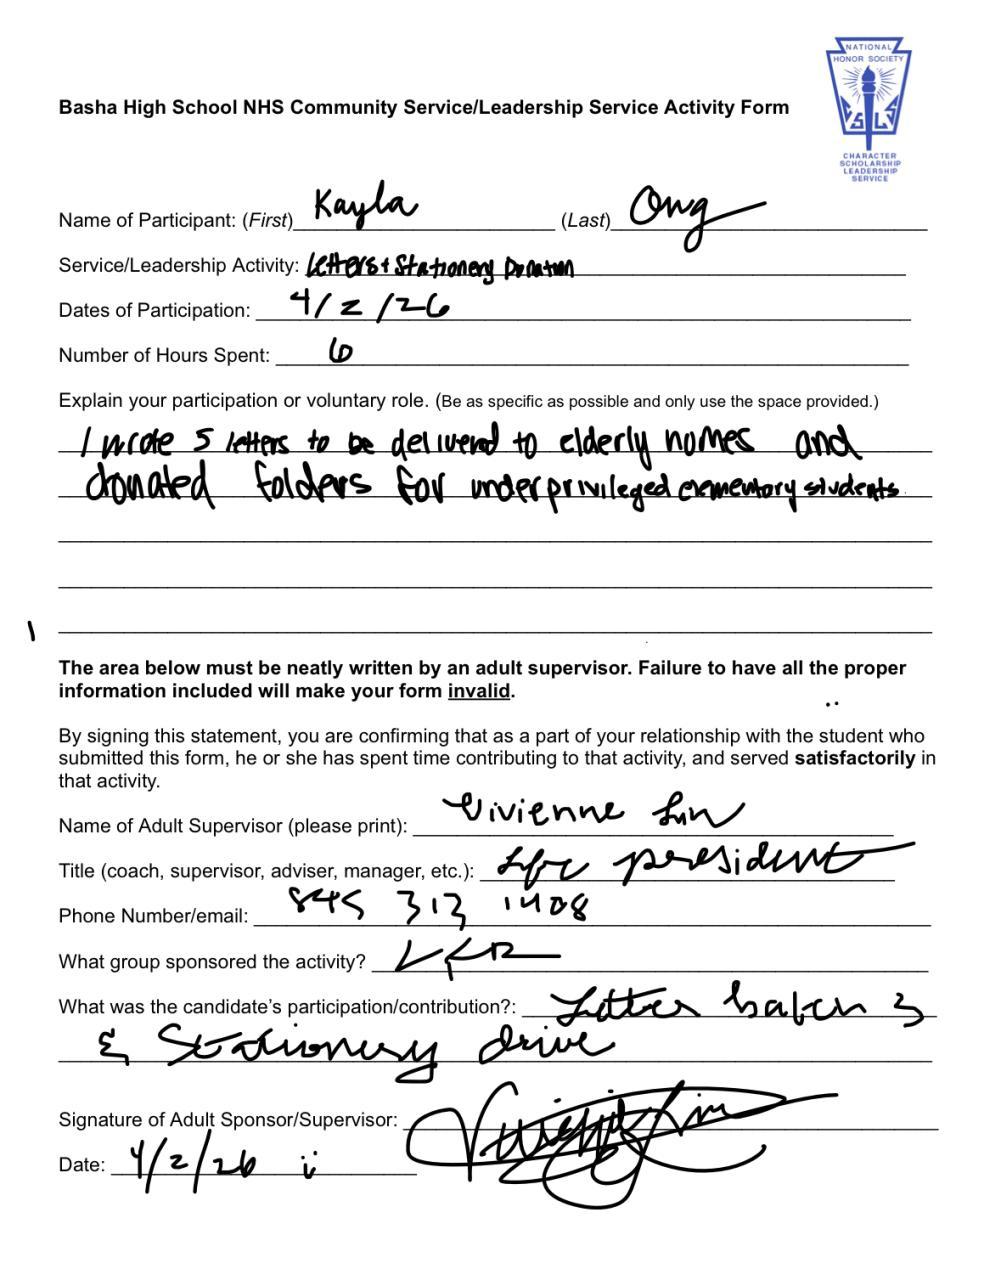 NATIONAL
HONOR SOCIETY
CSLS
CHARACTER
SCHOLARSHIP
LEADERSHIP
SERVICE
Basha High School NHS Community Service/Leadership Service Activity Form
Name of Participant: (First) Kayla (Last) Ong
Service/Leadership Activity: Letters + Stationery Donation
Dates of Participation: 4/2/26
Number of Hours Spent: 6
Explain your participation or voluntary role. (Be as specific as possible and only use the space provided.)
I wrote 5 letters to be delivered to elderly homes and
donated folders for underprivileged elementary students.
The area below must be neatly written by an adult supervisor. Failure to have all the proper
information included will make your form invalid.
By signing this statement, you are confirming that as a part of your relationship with the student who
submitted this form, he or she has spent time contributing to that activity, and served satisfactorily in
that activity.
Name of Adult Supervisor (please print): Vivienne Lin
Title (coach, supervisor, adviser, manager, etc.): president
Phone Number/email: 845 313 1408
What group sponsored the activity?
What was the candidate's participation/contribution?: Letter batch 3
& Stationery drive
Signature of Adult Sponsor/Supervisor: Vivienne Lin
Date: 4/2/26